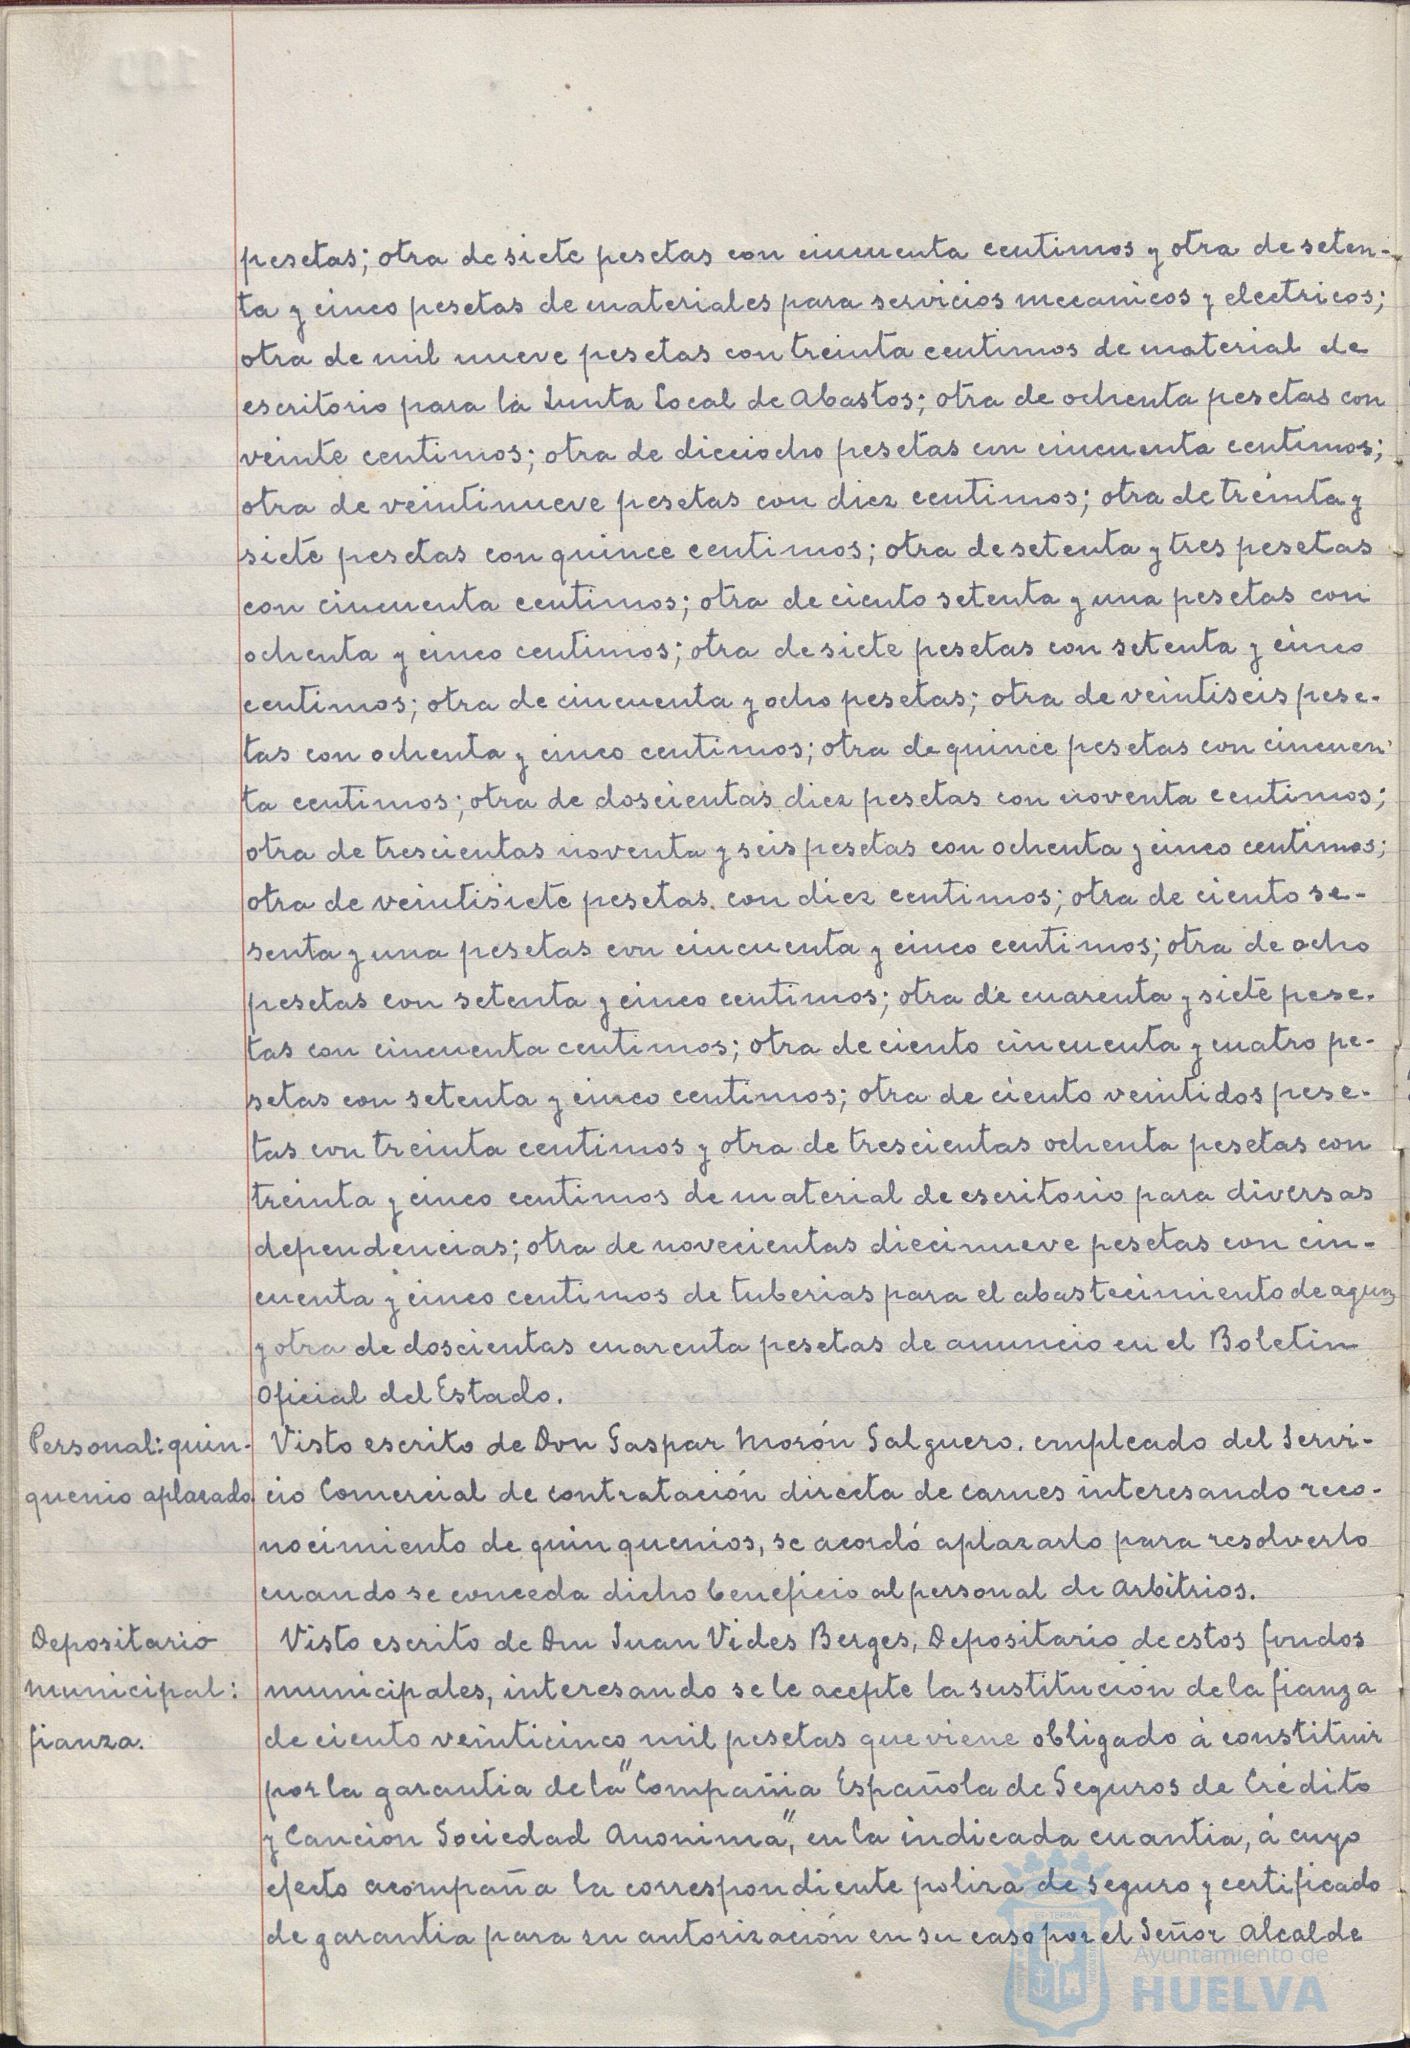 pesetas; otra de siete pesetas con cincuenta centimos y otra de seten-
ta y cinco pesetas de materiales para servicios mecanicos y electricos;
otra de mil nueve pesetas con treinta centimos de material de
escritorio para la Junta Local de Abastos; otra de ochenta pesetas con
veinte centimos; otra de dieciocho pesetas con cincuenta centimos;
otra de veintinueve pesetas con diez centimos; otra de treinta y
siete pesetas con quince centimos; otra de setenta y tres pesetas
con cincuenta centimos; otra de ciento setenta y una pesetas con
ochenta y cinco centimos; otra de siete pesetas con setenta y cinco
centimos; otra de cincuenta y ocho pesetas; otra de veintiseis pese-
tas con ochenta y cinco centimos; otra de quince pesetas con cincuen-
ta centimos; otra de doscientas diez pesetas con noventa centimos;
otra de trescientas noventa y seis pesetas con ochenta y cinco centimos;
otra de veintisiete pesetas con diez centimos; otra de ciento se-
senta y una pesetas con cincuenta y cinco centimos; otra de ocho
pesetas con setenta y cinco centimos; otra de cuarenta y siete pese-
tas con cincuenta centimos; otra de ciento cincuenta y cuatro pe-
setas con setenta y cinco centimos; otra de ciento veintidos pese-
tas con treinta centimos y otra de trescientas ochenta pesetas con
treinta y cinco centimos de material de escritorio para diversas
dependencias; otra de novecientas diecinueve pesetas con cin-
cuenta y cinco centimos de tuberias para el abastecimiento de aguas
y otra de doscientas cuarenta pesetas de anuncio en el Boletin
Oficial del Estado.
Personal: quin-
quenio aplazado
Visto escrito de Don Gaspar Morón Salguero. empleado del Servi-
cio Comercial de contratación directa de carnes interesando reco-
nocimiento de quinquenios, se acordó aplazarlo para resolverlo
cuando se conceda dicho beneficio al personal de Arbitrios.
Depositario
municipal:
fianza.
Visto escrito de Don Juan Vides Berges, Depositario de estos fondos
municipales, interesando se le acepte la sustitución de la fianza
de ciento veinticinco mil pesetas que viene obligado á constituir
por la garantia de la "Compañia Española de Seguros de Crédito
y Caucion Sociedad Anonima", en la indicada cuantia, á cuyo
efecto acompaña la correspondiente poliza de Seguro y certificado
de garantia para su autorización en su caso por el Señor Alcalde
Ayuntamiento de
HUELVA